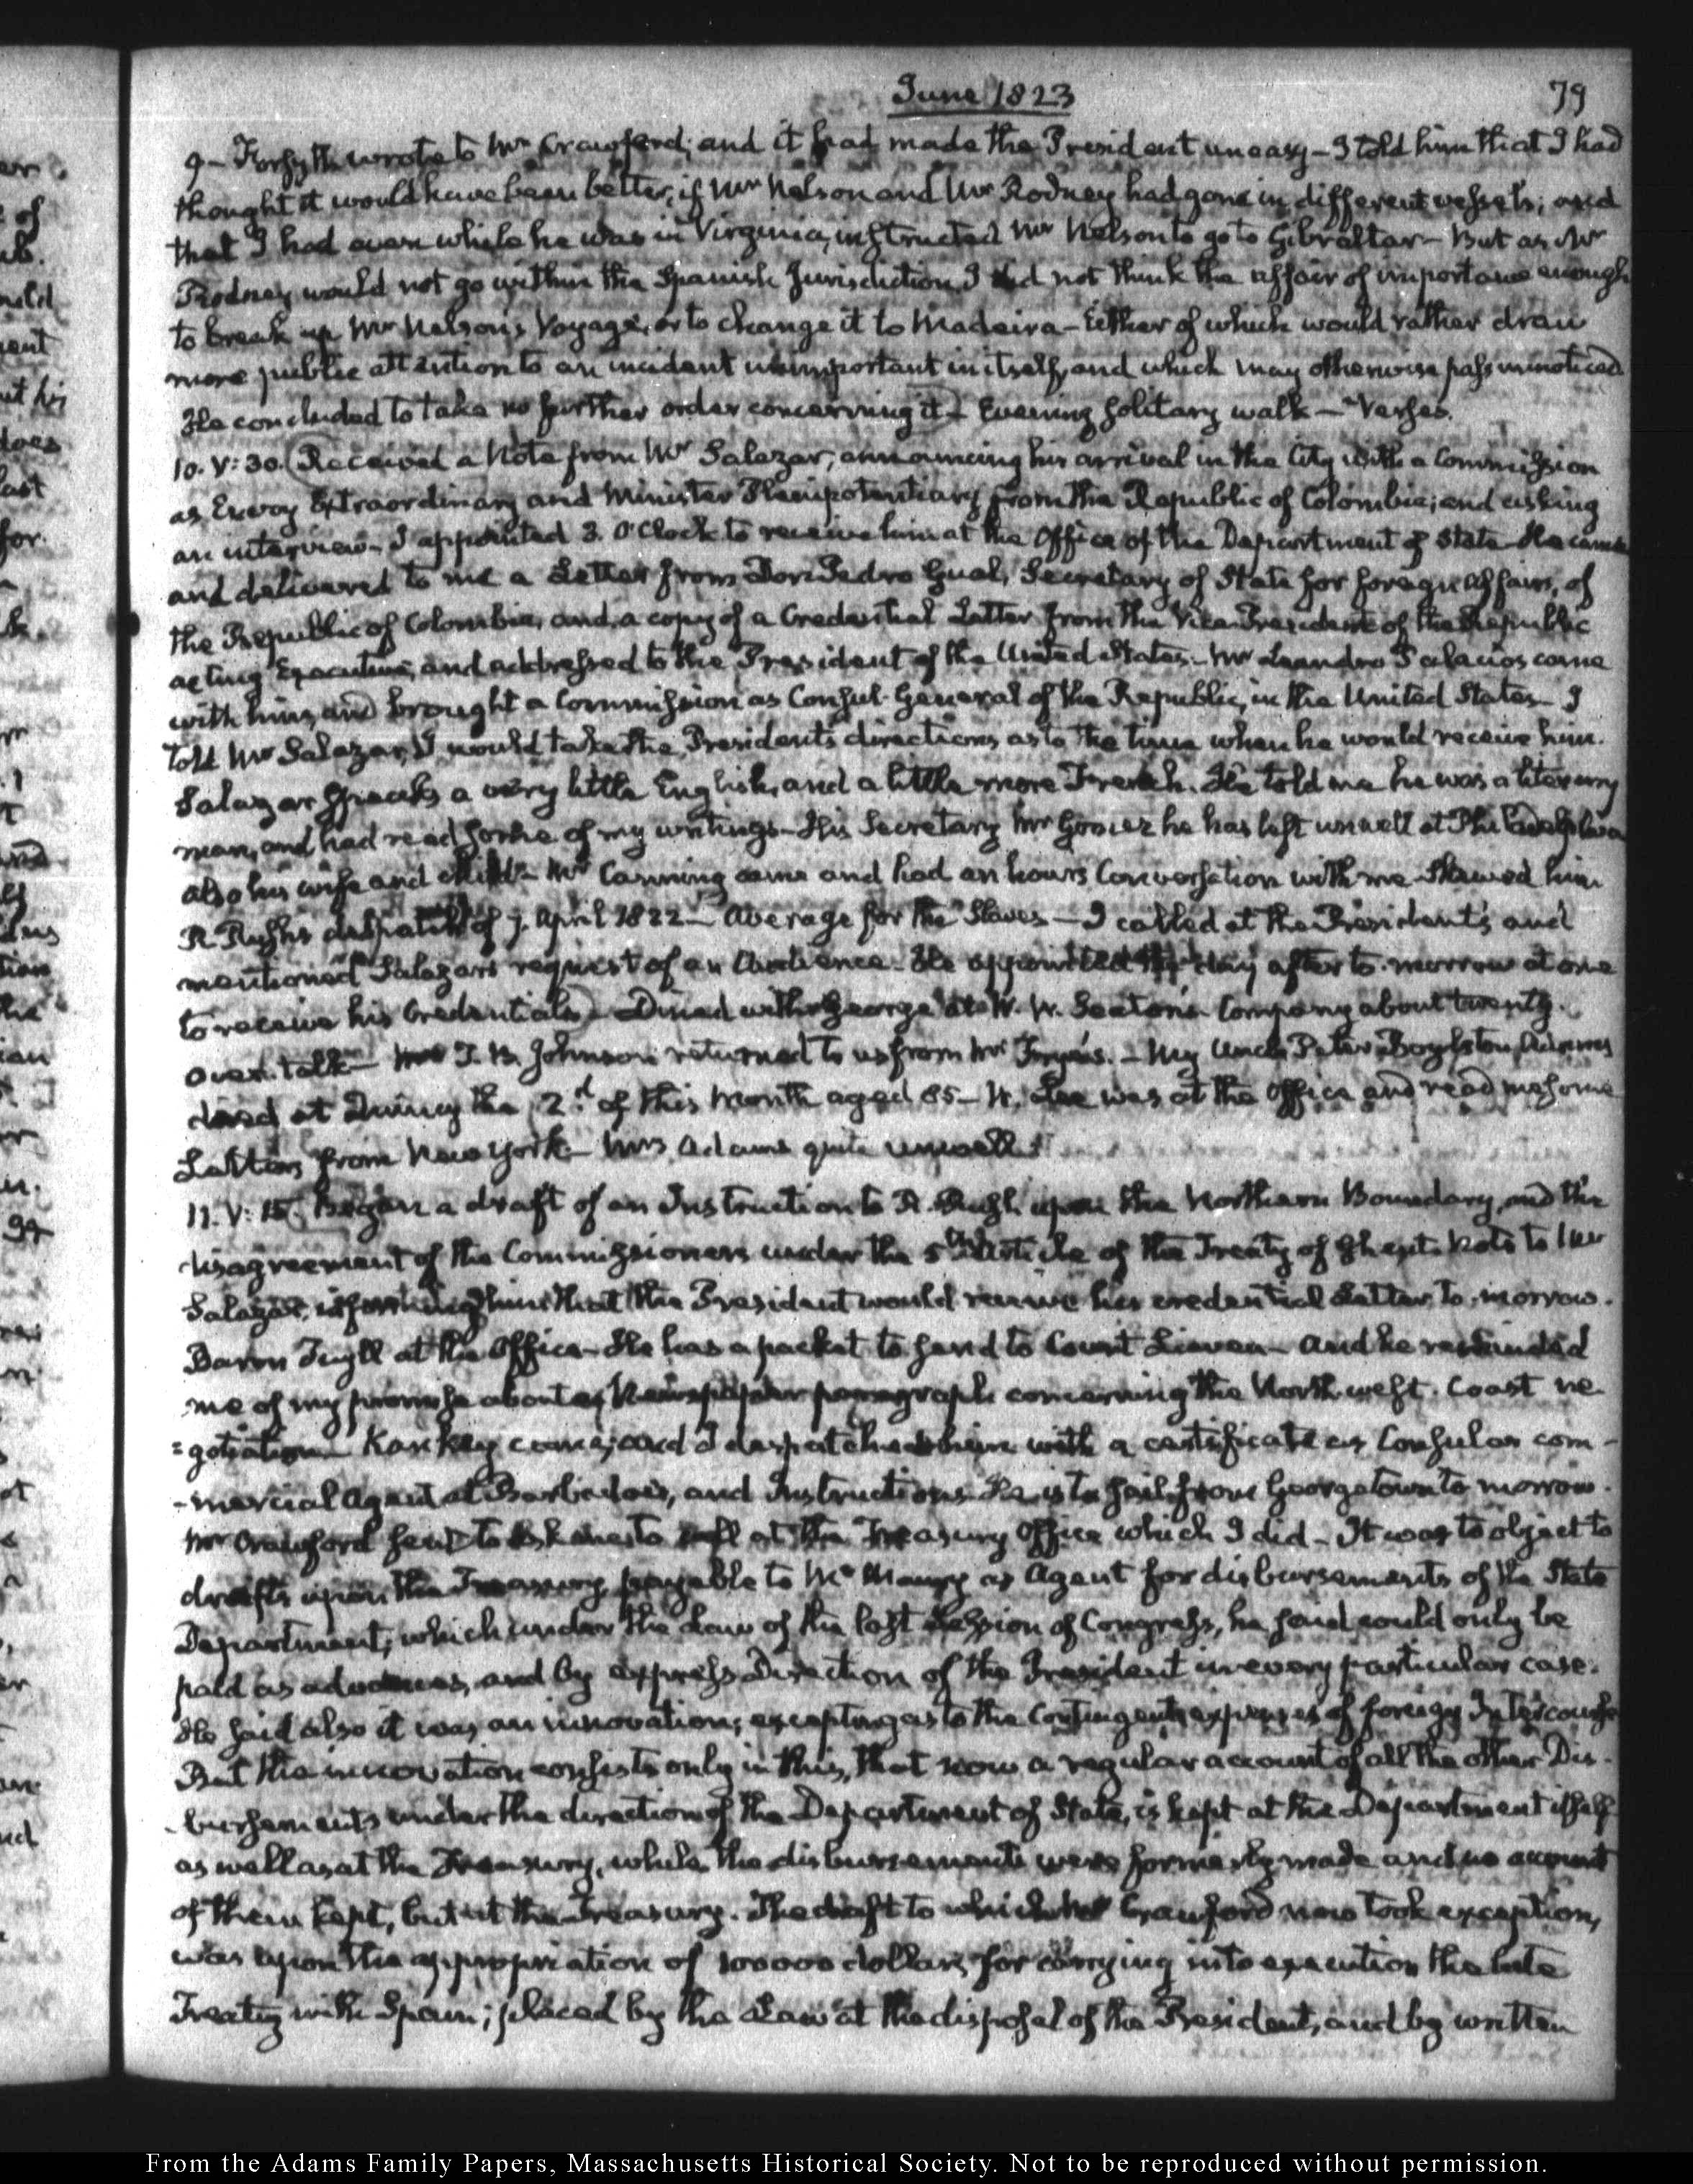 June 1823
79
9 — Forsyth wrote to Mr Crawford; and it had made the President uneasy — I told him that I had
thought it would have been better, if Mr Nelson and Mr Rodney had gone in different vessels; and
that I had even while he was in Virginia, instructed Mr Nelson to go to Gibraltar — But as Mr
Rodney would not go within the Spanish Jurisdiction I did not think the affair of importance enough
to break up Mr Nelson's Voyage, or to change it to Madeira — Either of which would rather draw
more public attention to an incident unimportant in itself, and which may otherwise pass unnoticed
He concluded to take no further order concerning it — Evening solitary walk — Verses.
10. V: 30. Received a Note from Mr Salazar, announcing his arrival in the City with a Commission
as Envoy Extraordinary and Minister Plenipotentiary from the Republic of Colombia; and asking
an interview — I appointed 3. O'Clock to receive him at the Office of the Department of State He came
and delivered to me a Letter from Don Pedro Gual, Secretary of State for foreign affairs, of
the Republic of Colombia, and a copy of a Credential Letter from the Vice-President of the Republic
acting Executive, and addressed to the President of the United States — Mr Leandro Palacios came
with him, and brought a Commission as Consul-General of the Republic, in the United States — I
told Mr Salazar, I would take the President's directions as to the time when he would receive him.
Salazar speaks a very little English, and a little more French. He told me he was a literary
man, and had read some of my writings — His Secretary Mr Gomez he has left unwell at Philadelphia
also his wife and child — Mr Canning came and had an hours Conversation with me — Shewed him
R. Rush's despatch of 7. April 1822 — Average for the Slaves — I called at the President's and
mentioned Salazar's request of an Audience — He appointed the day after to-morrow at one
to receive his Credentials — Dined with George at W. W. Seaton's. Company about twenty.
Over-talk — T. B. Johnson returned to us from Mr Frye's. — My Uncle Peter Boylston Adams
died at Quincy the 2.d of this Month aged 85 — W. Lee was at the Office and read me some
Letters from New York — Mrs Adams quite unwell.
11. V: 15. Began a draft of an Instruction to R. Rush upon the Northern Boundary, and the
disagreement of the Commissioners under the 5th Article of the Treaty of Ghent. Note to Mr
Salazar, informing him that the President would receive his credential Letter to-morrow.
Baron Tuyll at the Office — He has a packet to send to Count Lieven — and he reminded
me of my promise about a Newspaper paragraph concerning the North-west Coast ne
=gotiation — Kankey came; and I despatched him with a certificate as Consular com-
-mercial Agent at Barbadoes, and Instructions. He is to sail from Georgetown to morrow.
Mr Crawford sent to ask me to call at the Treasury Office which I did — It was to object to
drafts upon the Treasury, payable to Mr Maury as Agent for disbursements of the State
Department; which under the Law of the last Session of Congress, he said could only be
paid as advances, and by express Direction of the President in every particular case.
He said also it was an innovation; excepting as to the Contingent expenses of foreign Intercourse
But the innovation consists only in this, that now a regular account of all the other Dis-
-bursements under the direction of the Department of State, is kept at the Department itself
as well as at the Treasury, while the disbursements were formerly made and no account
of them kept, but at the Treasury. The draft to which Mr Crawford now took exception,
was upon the appropriation of 100000 dollars, for carrying into execution the late
Treaty with Spain; placed by the Law at the disposal of the President, and by written
From the Adams Family Papers, Massachusetts Historical Society. Not to be reproduced without permission.